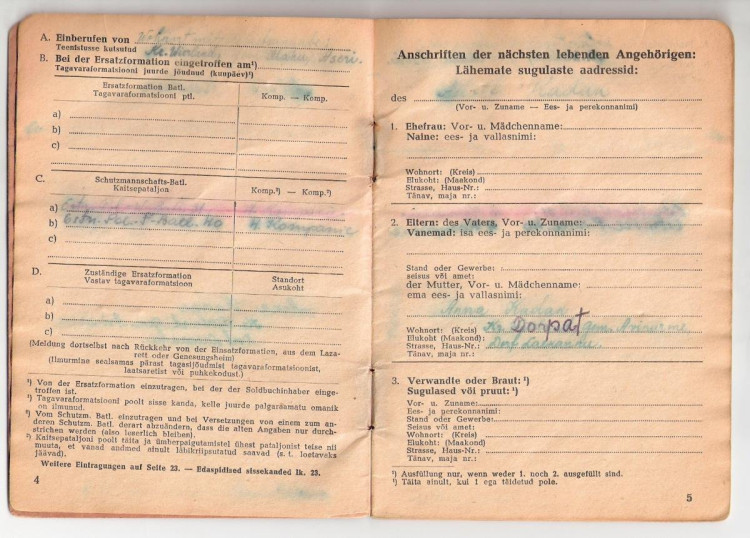 A. Einberufen von
Teenistusse kutsutud
B. Bei der Ersatzformation eingetroffen am¹)
Tagavaraformatsiooni juurde jõudnud (kuupäev)¹)
Ersatzformation Batl. Komp. — Komp.
Tagavaraformatsiooni ptl.
a)
b)
c)
C. Schutzmannschafts-Batl. Komp.³) — Komp.³)
Kaitsepataljon
a)
b) Batl. 40 Kompanie
c)
D. Zuständige Ersatzformation Standort
Vastav tagavaraformatsioon Asukoht
a)
b)
c)
(Meldung dortselbst nach Rückkehr von der Einsatzformation, aus dem Laza-
rett oder Genesungsheim)
(Ilmumine sealsamas pärast tagasijõudmist tagavaraformatsioonist,
laatsaretist või puhkekodust.)
¹) Von der Ersatzformation einzutragen, bei der der Soldbuchinhaber einge-
troffen ist.
²) Tagavaraformatsiooni poolt sisse kanda, kelle juurde palgaraamatu omanik
on ilmunud.
³) Vom Schutzm. Batl. einzutragen und bei Versetzungen von einem zum an-
deren Schutzm. Batl. derart abzuändern, dass die alten Angaben nur durch-
strichen werden (also leserlich bleiben).
³) Kaitsepataljoni poolt täita ja ümberpaigutamistel ühest pataljonist teise nii
muuta, et vanad andmed ainult läbikriipsutatud saavad (s. t. loetavaks
jäävad).
Weitere Eintragungen auf Seite 23. — Edaspidised sissekanded lk. 23.
4
Anschriften der nächsten lebenden Angehörigen:
Lähemate sugulaste aadressid:
des
(Vor- u. Zuname — Ees- ja perekonnanimi)
1. Ehefrau: Vor- u. Mädchenname:
Naine: ees- ja vallasnimi:
Wohnort: (Kreis)
Elukoht: (Maakond)
Strasse, Haus-Nr.:
Tänav, maja nr.:
2. Eltern: des Vaters, Vor- u. Zuname:
Vanemad: isa ees- ja perekonnanimi:
Stand oder Gewerbe:
seisus või amet:
der Mutter, Vor- u. Mädchenname:
ema ees- ja vallasnimi:
Anna
Wohnort: (Kreis) Kr. Dorpat
Elukoht (Maakond)
Strasse, Haus-Nr.: Dorf
Tänav, maja nr.:
3. Verwandte oder Braut: ¹)
Sugulased või pruut: ¹)
Vor- u. Zuname:
Ees- ja perekonnanimi:
Stand oder Gewerbe:
Seisus või amet:
Wohnort: (Kreis)
Elukoht: (Maakond)
Strasse, Haus-Nr.:
Tänav, maja nr.:
¹) Ausfüllung nur, wenn weder 1. noch 2. ausgefüllt sind.
¹) Täita ainult, kui 1 ega 2 täidetud pole.
5